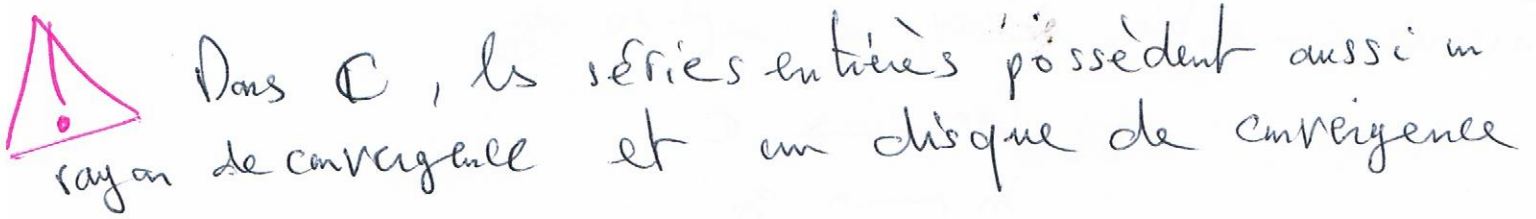 Dans ℂ, les séries entières possèdent aussi un
rayon de convergence et un disque de convergence